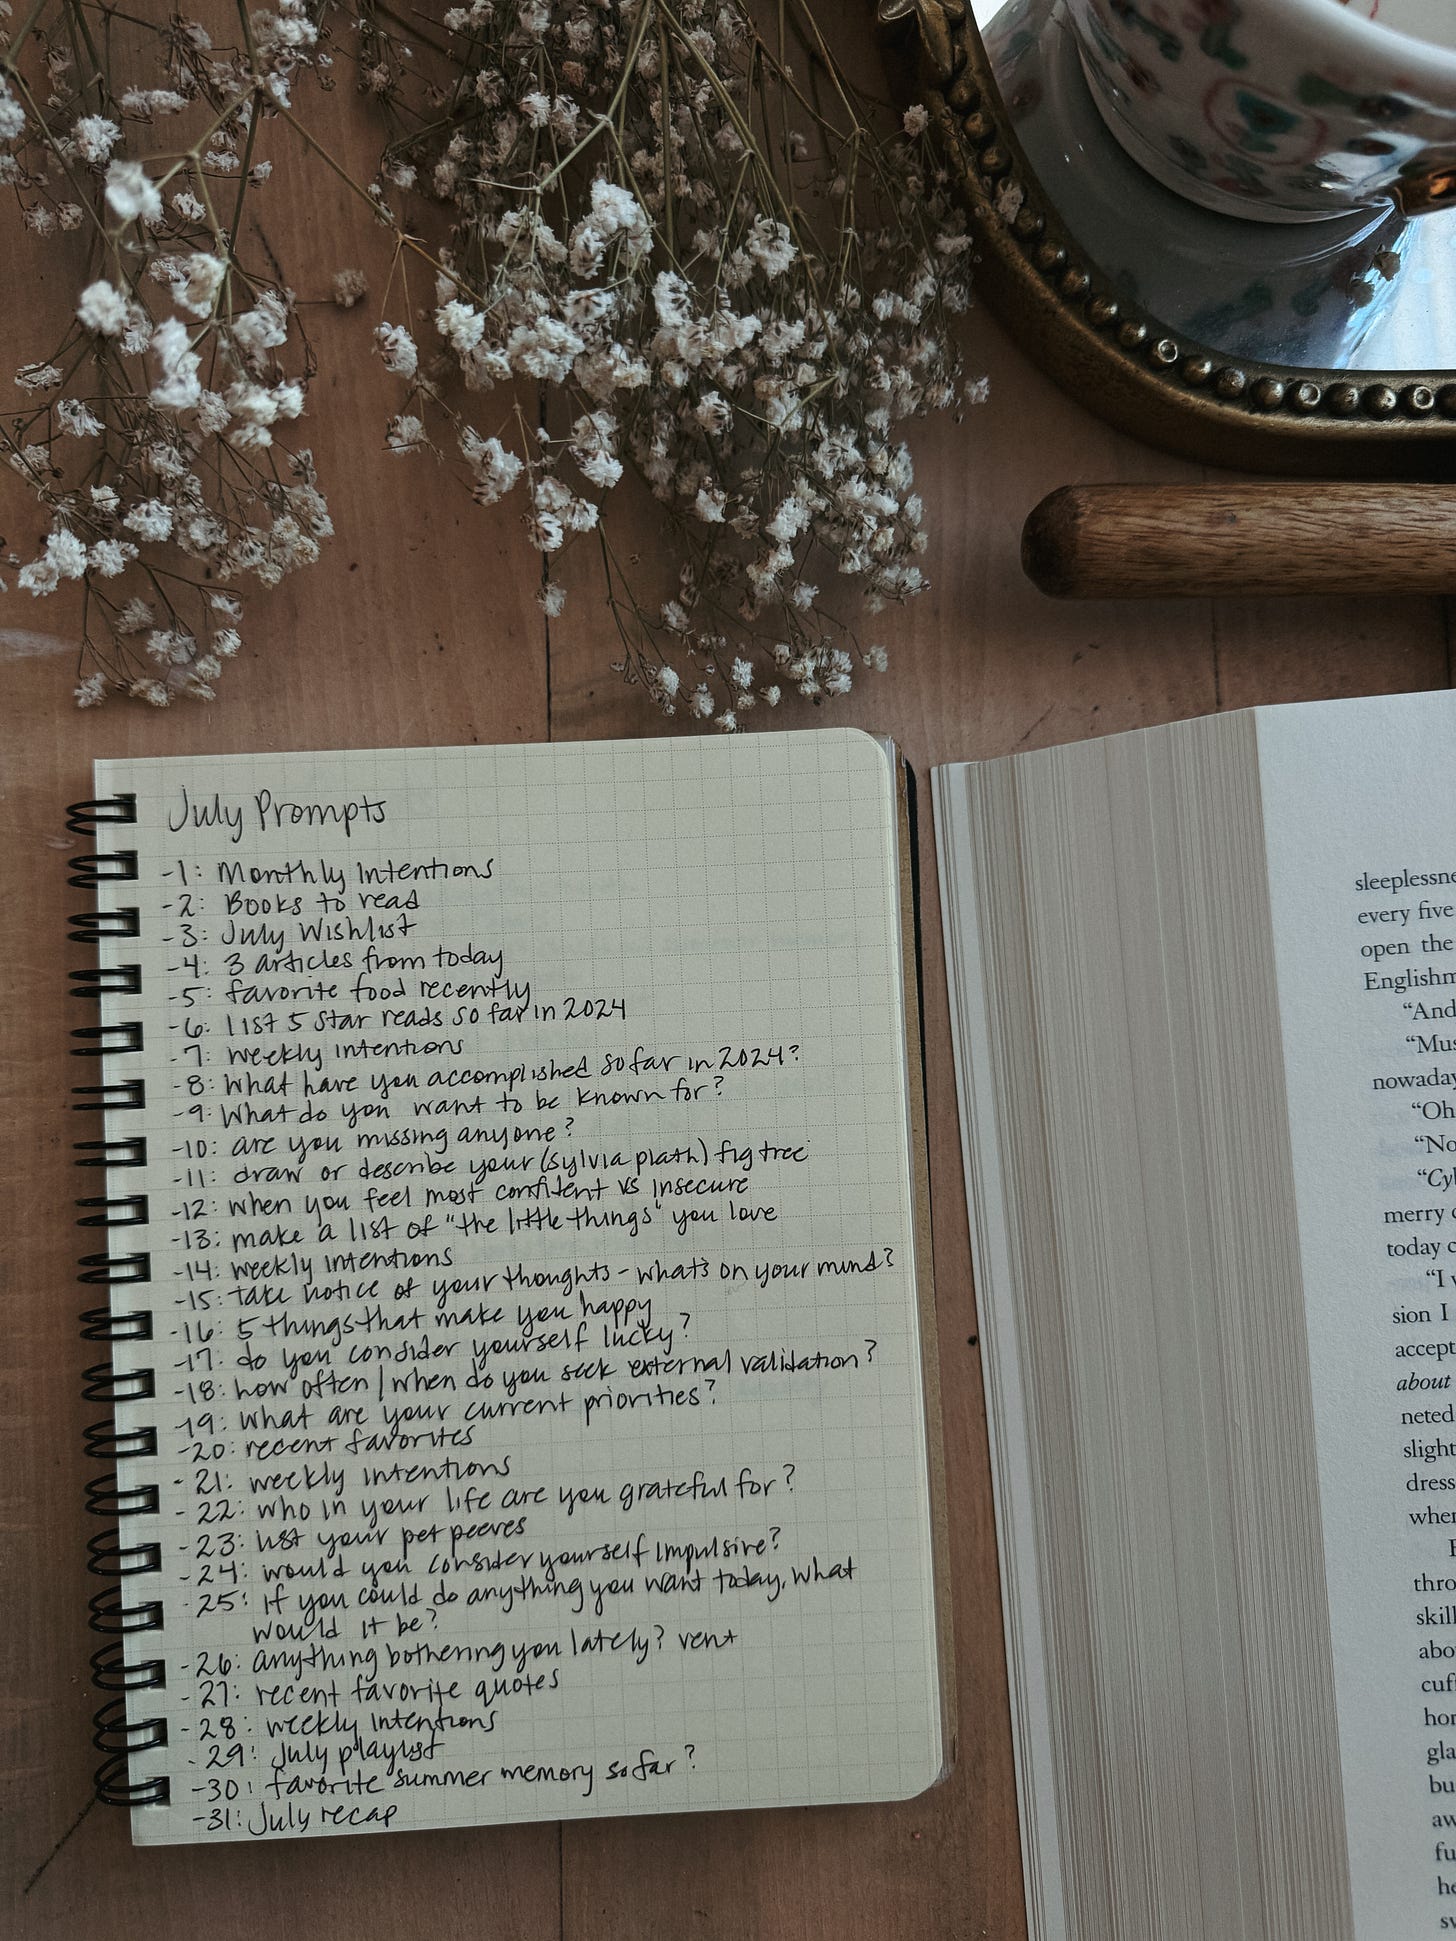 July Prompts
-1: Monthly Intentions
-2: Books to read
-3: July Wishlist
-4: 3 articles from today
-5: favorite food recently
-6: list 5 star reads so far in 2024
-7: weekly intentions
-8: What have you accomplished so far in 2024?
-9: What do you want to be known for?
-10: are you missing anyone?
-11: draw or describe your (sylvia plath) fig tree
-12: when you feel most confident vs insecure
-13: make a list of "the little things" you love
-14: weekly intentions
-15: take notice of your thoughts - what's on your mind?
-16: 5 things that make you happy
-17: do you consider yourself lucky?
-18: how often/when do you seek external validation?
-19: what are your current priorities?
-20: recent favorites
-21: weekly intentions
-22: who in your life are you grateful for?
-23: list your pet peeves
-24: would you consider yourself impulsive?
-25: if you could do anything you want today, what
would it be?
-26: anything bothering you lately? vent
-27: recent favorite quotes
-28: weekly intentions
-29: July playlist
-30: favorite summer memory so far?
-31: July recap
every five
open the
"And
"Mus
nowaday
"Oh
"No
"Cyl
merry
today
"I
sion I
accept
about
neted
slight
dress
when
thro
skill
abo
cuff
hor
gla
bu
aw
fu
he
sw